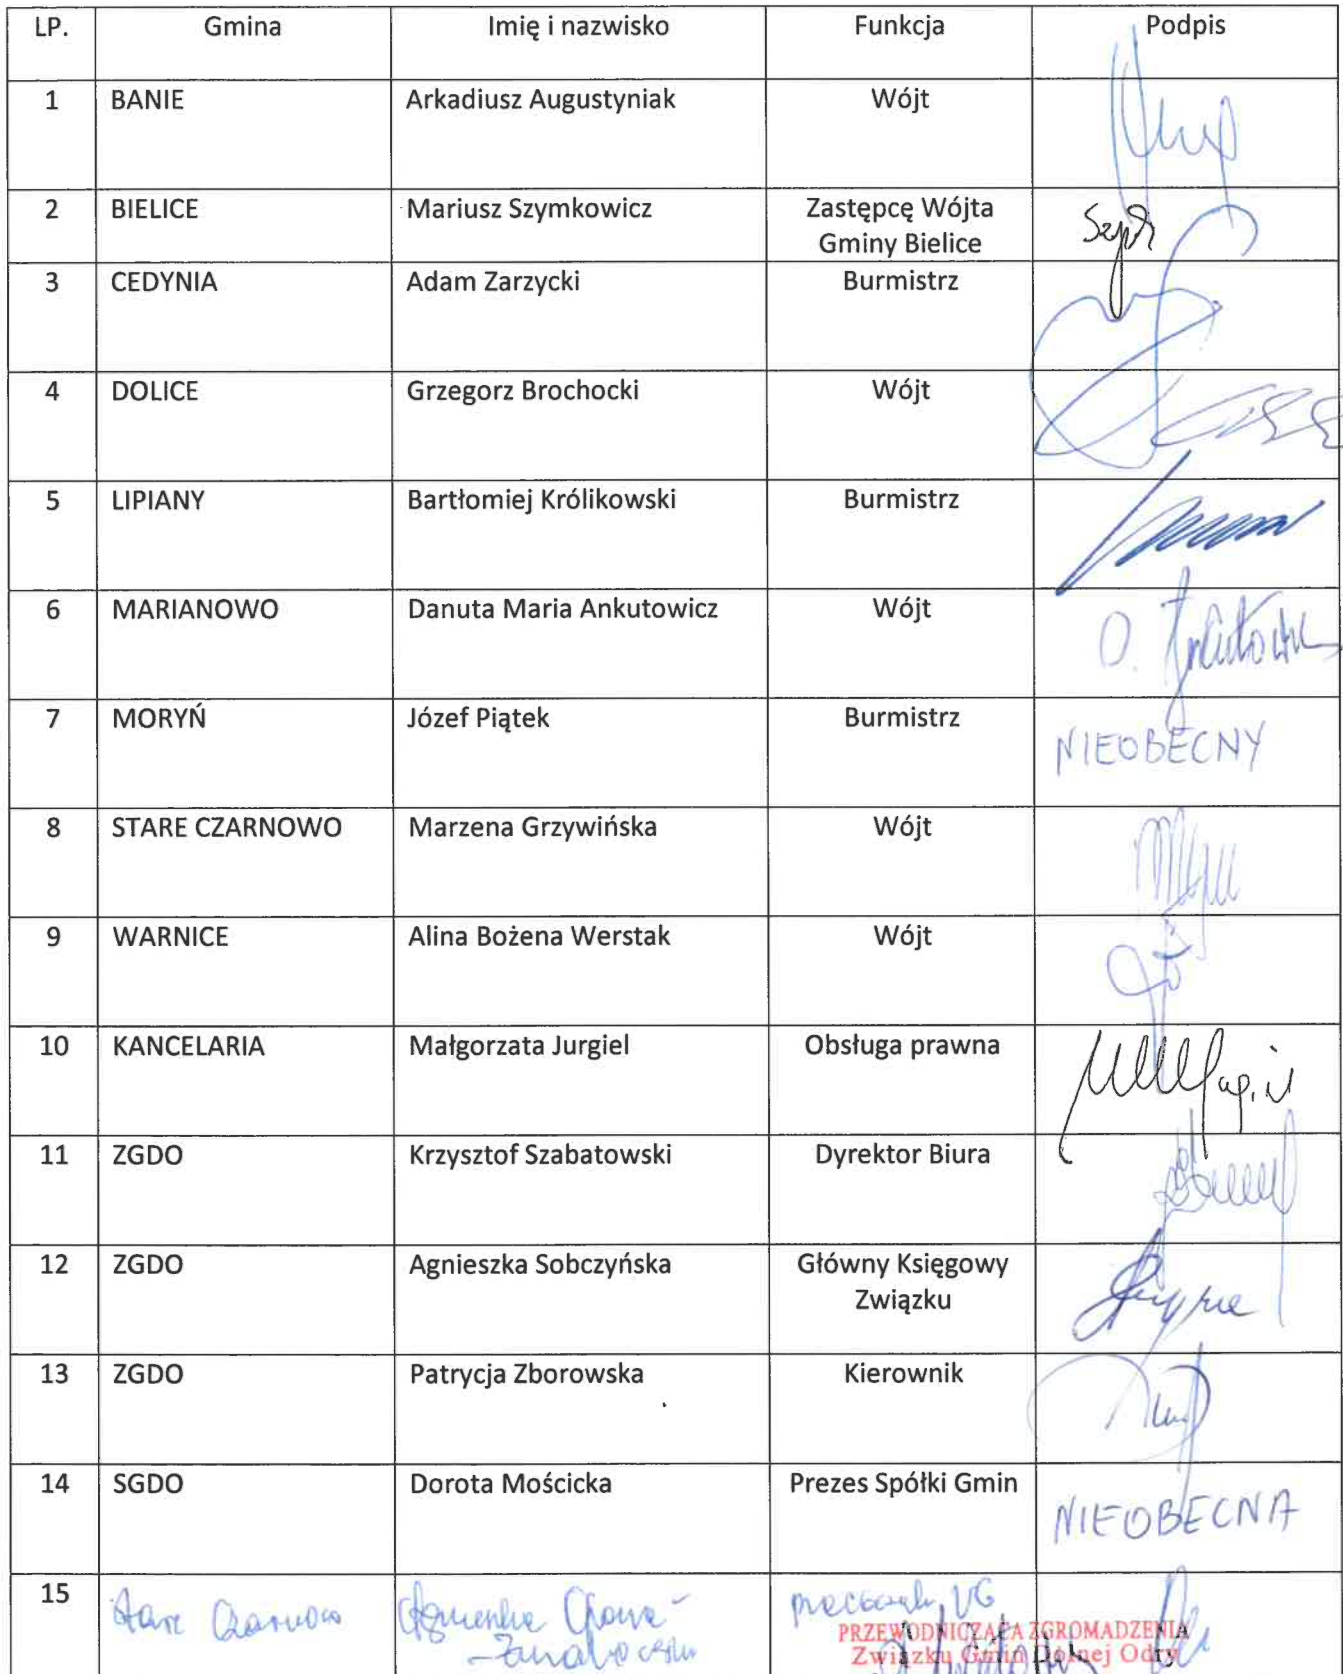 LP. Gmina Imię i nazwisko Funkcja Podpis
1 BANIE Arkadiusz Augustyniak Wójt
2 BIELICE Mariusz Szymkowicz Zastępcę Wójta
Gminy Bielice
3 CEDYNIA Adam Zarzycki Burmistrz
4 DOLICE Grzegorz Brochocki Wójt
5 LIPIANY Bartłomiej Królikowski Burmistrz
6 MARIANOWO Danuta Maria Ankutowicz Wójt
7 MORYŃ Józef Piątek Burmistrz NIEOBECNY
8 STARE CZARNOWO Marzena Grzywińska Wójt
9 WARNICE Alina Bożena Werstak Wójt
10 KANCELARIA Małgorzata Jurgiel Obsługa prawna
11 ZGDO Krzysztof Szabatowski Dyrektor Biura
12 ZGDO Agnieszka Sobczyńska Główny Księgowy
Związku
13 ZGDO Patrycja Zborowska Kierownik
14 SGDO Dorota Mościcka Prezes Spółki Gmin NIEOBECNA
15 Stare Czarnowo UG
PRZEWODNICZĄCA ZGROMADZENIA
Związku Gmin Dolnej Odry